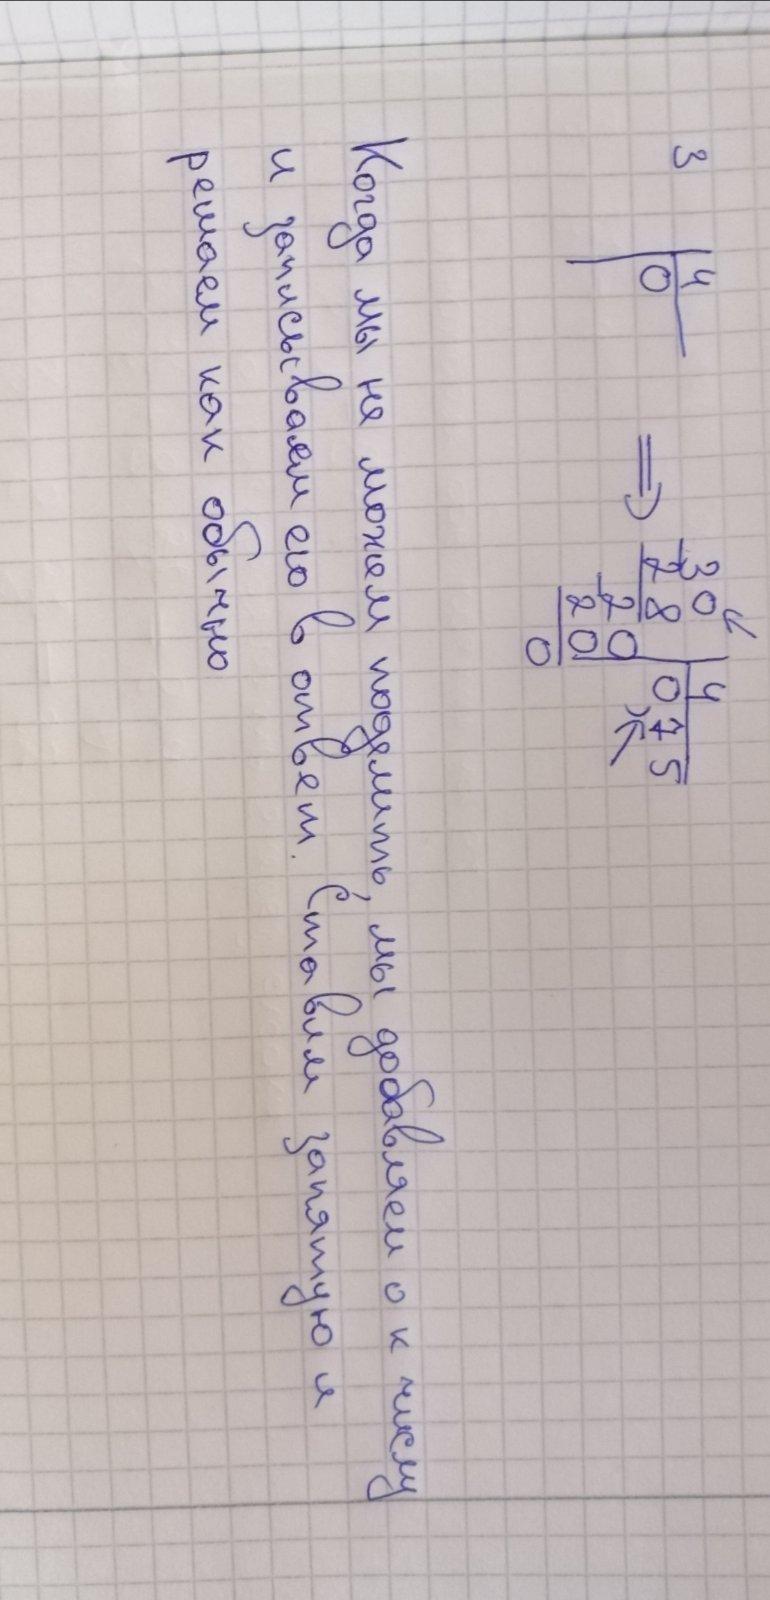 3 | 4
0
⇒
30 | 4
28 | 0,75
20
20
0
Когда мы не можем поделить, мы добавляем 0 к числу
и записываем его в ответ. Ставим запятую и
решаем как обычно